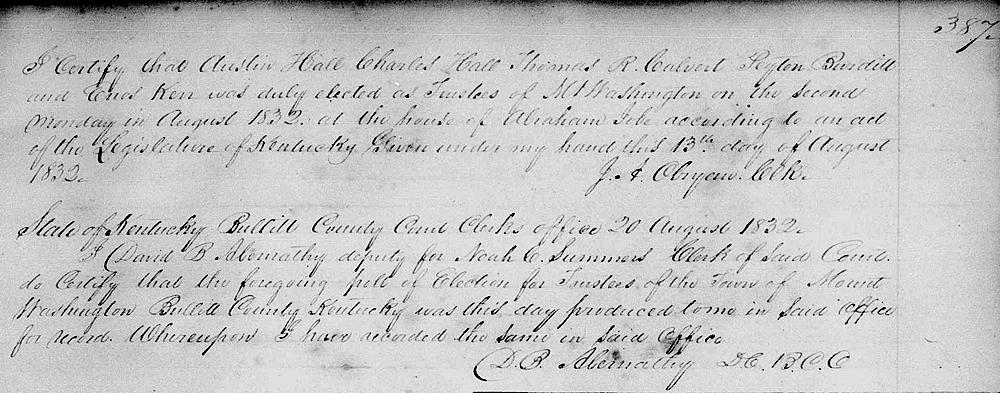 387.
I Certify that Austin Hall Charles Hall Thomas R. Calvert Peyton Burditt
and Enos Kerr was duly elected as Trustees of Mt Washington on the second
Monday in August 1832. at the house of Abraham according to an act
of the Legislature of Kentucky Given under my hand this 13th day of August
1832. J. A. Clk.
State of Kentucky Bullitt County Court Clerks office 20 August 1832.
I David B Abernathy deputy for Noah C. Summers Clerk of Said Court.
do Certify that the foregoing poll of Election for Trustees of the Town of Mount
Washington Bullitt County Kentucky was this day produced to me in Said Office
for record. Whereupon I have recorded the same in Said Office
D. B. Abernathy D.C. B.C.C